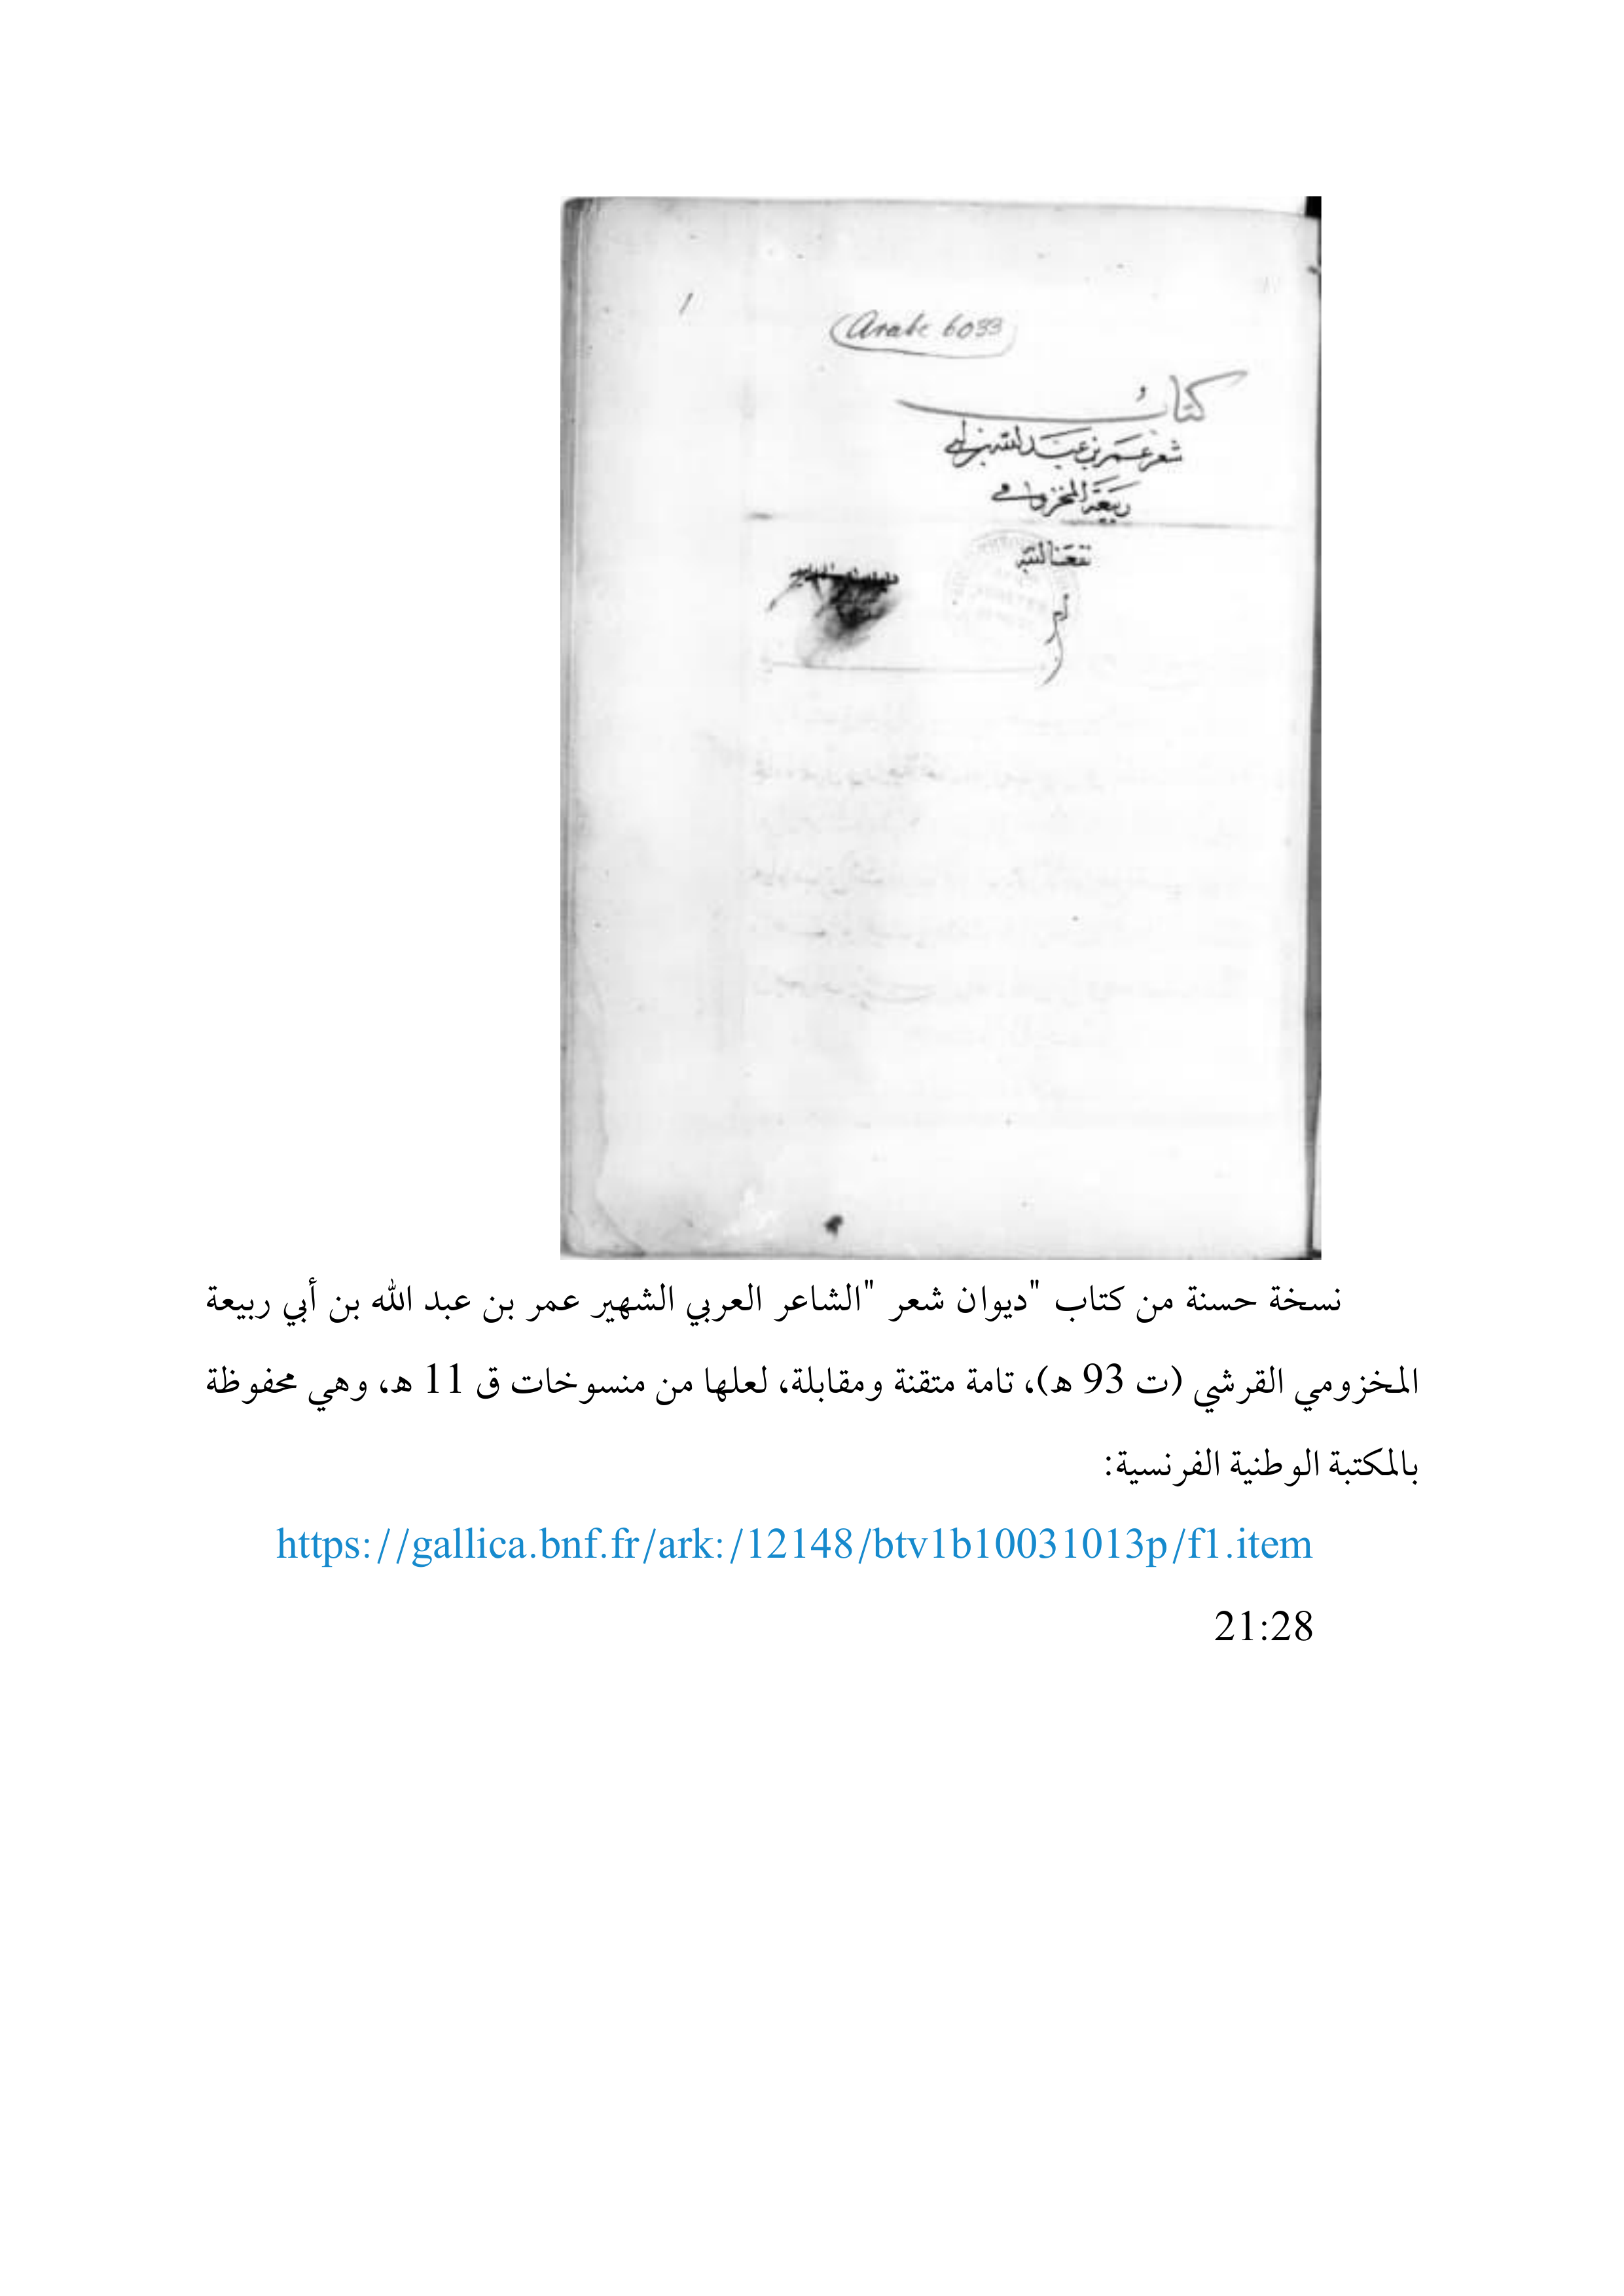 1
Arabe 6033
كتاب
شعر عمر بن عبد الله بن أبي
ربيعة المخزومي
نفعنا الله
نسخة حسنة من كتاب "ديوان شعر "الشاعر العربي الشهير عمر بن عبد الله بن أبي ربيعة
المخزومي القرشي (ت 93 هـ)، تامة متقنة ومقابلة، لعلها من منسوخات ق 11 هـ، وهي محفوظة
بالمكتبة الوطنية الفرنسية:
https://gallica.bnf.fr/ark:/12148/btv1b10031013p/f1.item
21:28